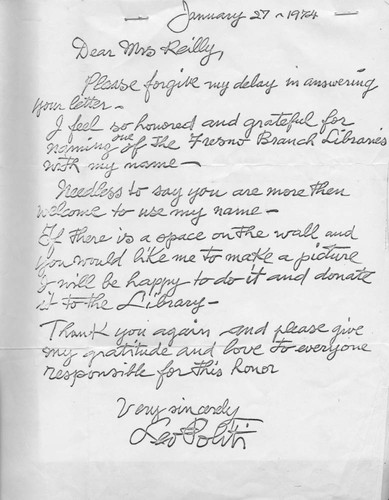 January 27 ~ 1974
Dear Mrs Reilly,
Please forgive my delay in answering
your letter —
I feel so honored and grateful for
naming one of the Fresno Branch Libraries
with my name —
Needless to say you are more then
welcome to use my name —
If there is a space on the wall and
you would like me to make a picture
I will be happy to do it and donate
it to the Library —
Thank you again and please give
my gratitude and love to everyone
responsible for this honor
Very sincerely
Leo Politi